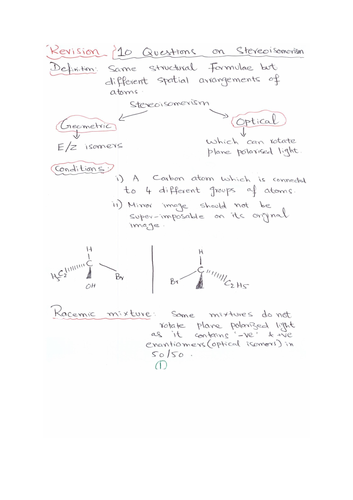 Revision 10 Questions on Stereoisomerism
Definition: Same structural formulae but
different spatial arrangements of
atoms.
Stereoisomerism
Geometric
Optical
E/Z isomers
which can rotate
plane polarised light.
Conditions
i) A Carbon atom which is connected
to 4 different groups of atoms.
ii) Mirror image should not be
super-imposable on its orginal
image.
H H
C C
H5C2 Br Br C2H5
OH
Racemic mixture: Some mixtures do not
rotate plane polarized light
as it contains '-ve' & +ve
enantiomers (optical isomers) in
50/50.
(1)